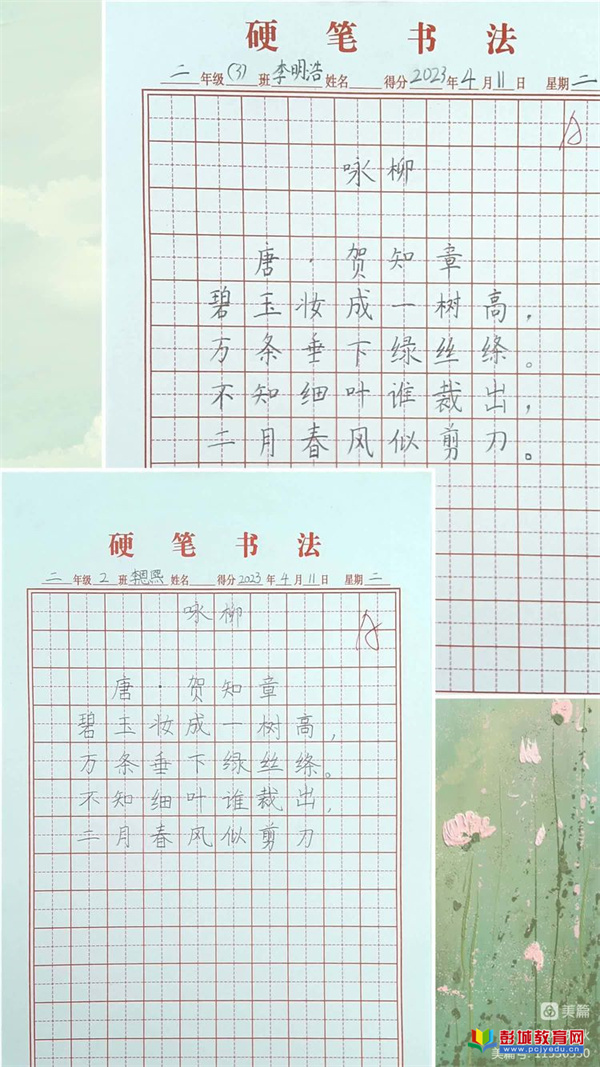 硬笔书法
二年级(3)班李明浩姓名 得分2023年4月11日 星期二
A
咏柳
唐·贺知章
碧玉妆成一树高，
万条垂下绿丝绦。
不知细叶谁裁出，
二月春风似剪刀。
硬笔书法
二年级2班 姓名 得分2023年4月11日 星期二
A
咏柳
唐·贺知章
碧玉妆成一树高，
万条垂下绿丝绦。
不知细叶谁裁出，
二月春风似剪刀
美篇
彭城教育网
www.pcjyedu.cn
美篇号: